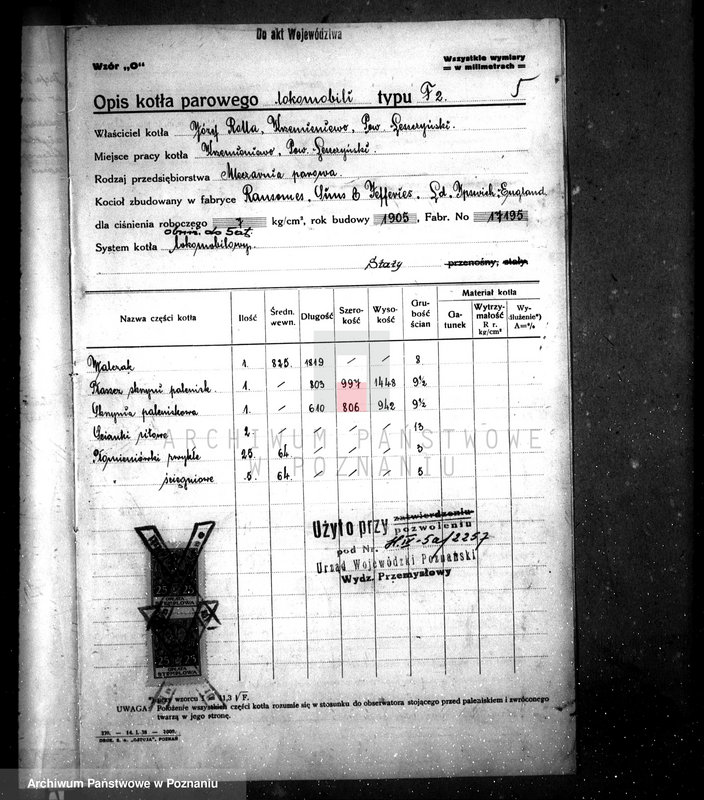 Do akt Województwa
Wzór „O“
Wszystkie wymiary
= w milimetrach =
5
Opis kotła parowego lokomobili typu F2.
Właściciel kotła Józef Ratla, Krzemieniewo, Pow. Leszczyński.
Miejsce pracy kotła Krzemieniewo, Pow. Leszczyński.
Rodzaj przedsiębiorstwa Mleczarnia parowa.
Kocioł zbudowany w fabryce Ransomes, Sims & Jefferies, Ld. Ipswich-England
dla ciśnienia roboczego 7 kg/cm², rok budowy 1905, Fabr. No 17195
obniż. do 5 at.
System kotła lokomobilowy.
Stały przenośny, stały
Nazwa części kotła Ilość Średn. wewn. Długość Szerokość Wysokość Grubość ścian Materiał kotła
Gatunek Wytrzymałość R r. kg/cm² Wydłużenie*) A=%
Walczak 1. 825 1819 / / 8
Płaszcz skrzyni palenisk. 1. / 803 997 1448 9½
Skrzynia paleniskowa 1. / 610 806 942 9½
Ścianki sitowe 2 / / / / 13
Płomieniówki zwykłe 25. 64. / / / 3
" ściągniowe 5. 64. / / / 5
ARCHIWUM PAŃSTWOWE
W POZNANIU
Użyto przy zatwierdzeniu
pozwoleniu
pod Nr. H.IV-5a/2257
Urząd Wojewódzki Poznański
Wydz. Przemysłowy
OPŁATA
STEMPLOWA
OPŁATA
STEMPLOWA
UWAGA: Położenie wszystkich części kotła rozumie się w stosunku do obserwatora stojącego przed paleniskiem i zwróconego
twarzą w jego stronę.
DRUK. S. A. „OSTOJA", POZNAŃ
Archiwum Państwowe w Poznaniu